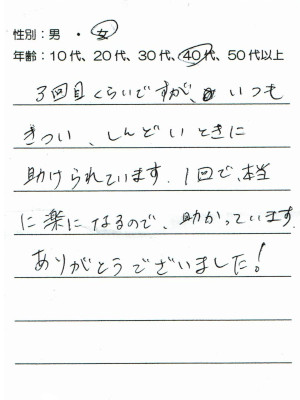 性別：男 ・ 女
年齢：10代、20代、30代、40代、50代以上
3回目くらいですが、いつも
きつい、しんどいときに
助けられています。1回で、本当
に楽になるので、助かっています。
ありがとうございました！